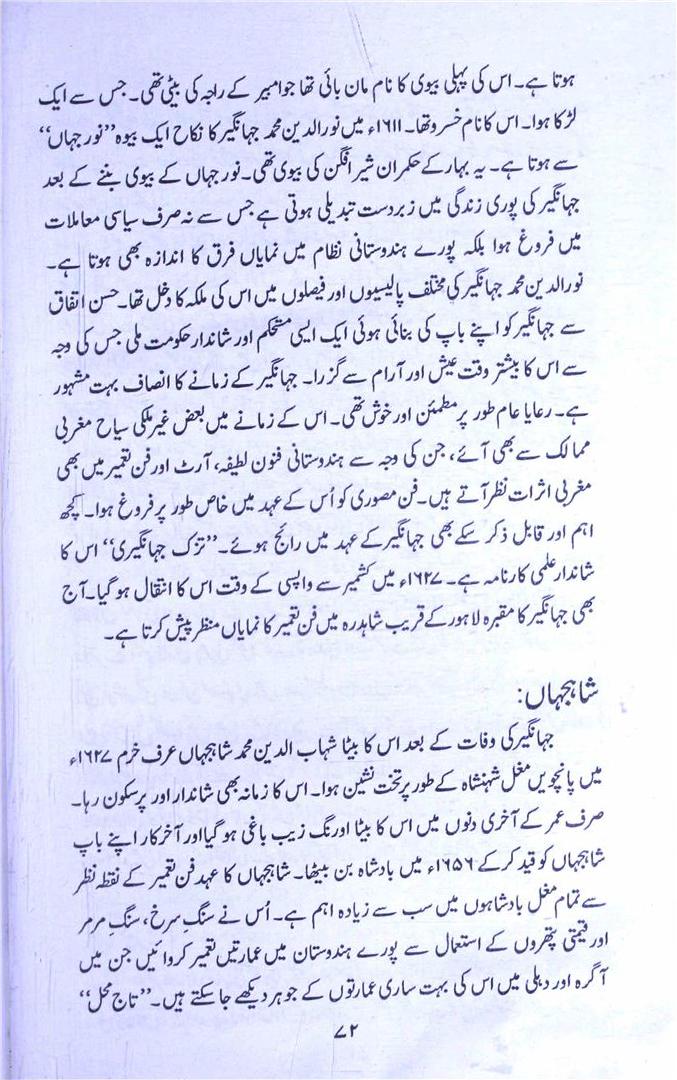 ہوتا ہے۔ اس کی پہلی بیوی کا نام مان بائی تھا جو امبیر کے راجہ کی بیٹی تھی۔ جس سے ایک
لڑکا ہوا۔ اس کا نام خسرو تھا۔ ۱۶۱۱ء میں نورالدین محمد جہانگیر کا نکاح ایک بیوہ ”نور جہاں“
سے ہوتا ہے۔ یہ بہار کے حکمران شیر افگن کی بیوی تھی۔ نور جہاں کے بیوی بننے کے بعد
جہانگیر کی پوری زندگی میں زبردست تبدیلی ہوتی ہے جس سے نہ صرف سیاسی معاملات
میں فروغ ہوا بلکہ پورے ہندوستانی نظام میں نمایاں فرق کا اندازہ بھی ہوتا ہے۔
نورالدین محمد جہانگیر کی مختلف پالیسیوں اور فیصلوں میں اس کی ملکہ کا دخل تھا۔ حسن اتفاق
سے جہانگیر کو اپنے باپ کی بنائی ہوئی ایک ایسی مستحکم اور شاندار حکومت ملی جس کی وجہ
سے اس کا بیشتر وقت عیش اور آرام سے گزرا۔ جہانگیر کے زمانے کا انصاف بہت مشہور
ہے۔ رعایا عام طور پر مطمئن اور خوش تھی۔ اس کے زمانے میں بعض غیر ملکی سیاح مغربی
ممالک سے بھی آئے، جن کی وجہ سے ہندوستانی فنون لطیفہ، آرٹ اور فن تعمیر میں بھی
مغربی اثرات نظر آتے ہیں۔ فن مصوری کو اُس کے عہد میں خاص طور پر فروغ ہوا۔ کچھ
اہم اور قابل ذکر سکے بھی جہانگیر کے عہد میں رائج ہوئے۔ ”تزک جہانگیری“ اس کا
شاندار علمی کارنامہ ہے۔ ۱۶۲۷ء میں کشمیر سے واپسی کے وقت اس کا انتقال ہو گیا۔ آج
بھی جہانگیر کا مقبرہ لاہور کے قریب شاہدرہ میں فن تعمیر کا نمایاں منظر پیش کرتا ہے۔
شاہجہاں:
جہانگیر کی وفات کے بعد اس کا بیٹا شہاب الدین محمد شاہجہاں عرف خرم ۱۶۲۷ء
میں پانچویں مغل شہنشاہ کے طور پر تخت نشین ہوا۔ اس کا زمانہ بھی شاندار اور پر سکون رہا۔
صرف عمر کے آخری دنوں میں اس کا بیٹا اورنگ زیب باغی ہو گیا اور آخر کار اپنے باپ
شاہجہاں کو قید کر کے ۱۶۵۶ء میں بادشاہ بن بیٹھا۔ شاہجہاں کا عہد فن تعمیر کے نقطہ نظر
سے تمام مغل بادشاہوں میں سب سے زیادہ اہم ہے۔ اُس نے سنگِ سرخ، سنگِ مرمر
اور قیمتی پتھروں کے استعمال سے پورے ہندوستان میں عمارتیں تعمیر کروائیں جن میں
آگرہ اور دہلی میں اس کی بہت ساری عمارتوں کے جوہر دیکھے جا سکتے ہیں۔ ”تاج محل“
۷۲